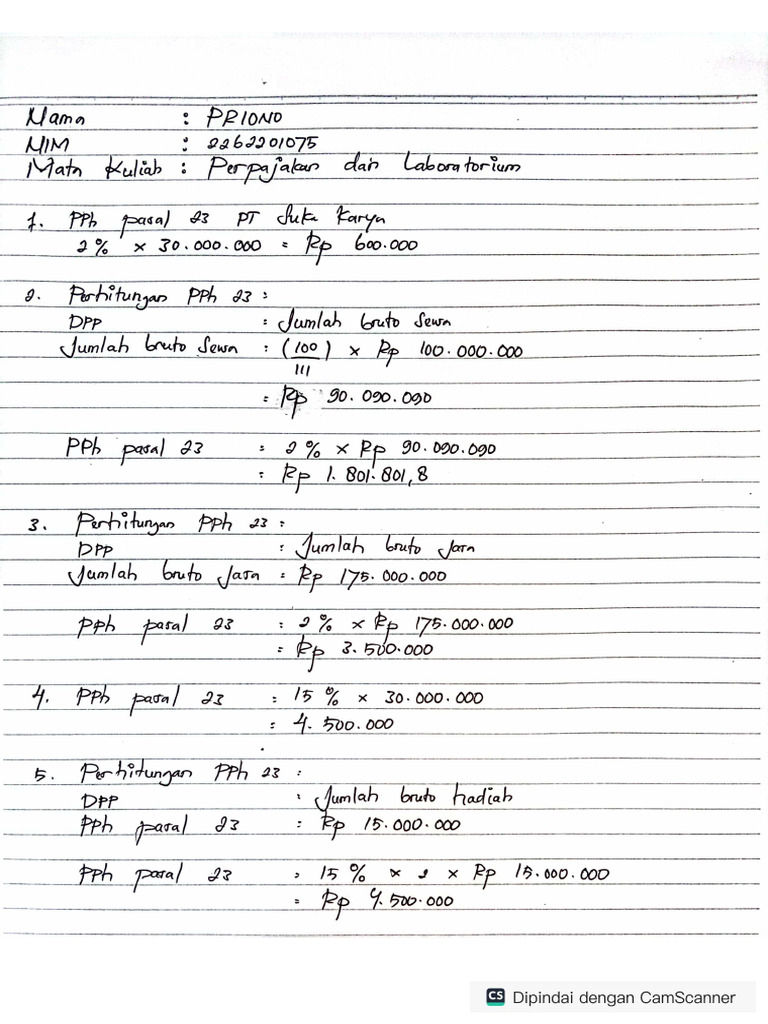 Nama : PRIONO
NIM : 2262201075
Mata Kuliah : Perpajakan dan Laboratorium
1. PPh pasal 23 PT Suka Karya
2% x 30.000.000 = Rp 600.000
2. Perhitungan PPh 23 :
DPP : Jumlah bruto Sewa
Jumlah bruto Sewa : (100/111) x Rp 100.000.000
= Rp 90.090.090
PPh pasal 23 = 2% x Rp 90.090.090
= Rp 1.801.801,8
3. Perhitungan PPh 23 :
DPP : Jumlah bruto Jasa
Jumlah bruto Jasa = Rp 175.000.000
PPh pasal 23 = 2% x Rp 175.000.000
= Rp 3.500.000
4. PPh pasal 23 = 15% x 30.000.000
= 4.500.000
5. Perhitungan PPh 23 :
DPP : Jumlah bruto hadiah
PPh pasal 23 = Rp 15.000.000
PPh pasal 23 = 15% x 2 x Rp 15.000.000
= Rp 4.500.000
CS Dipindai dengan CamScanner